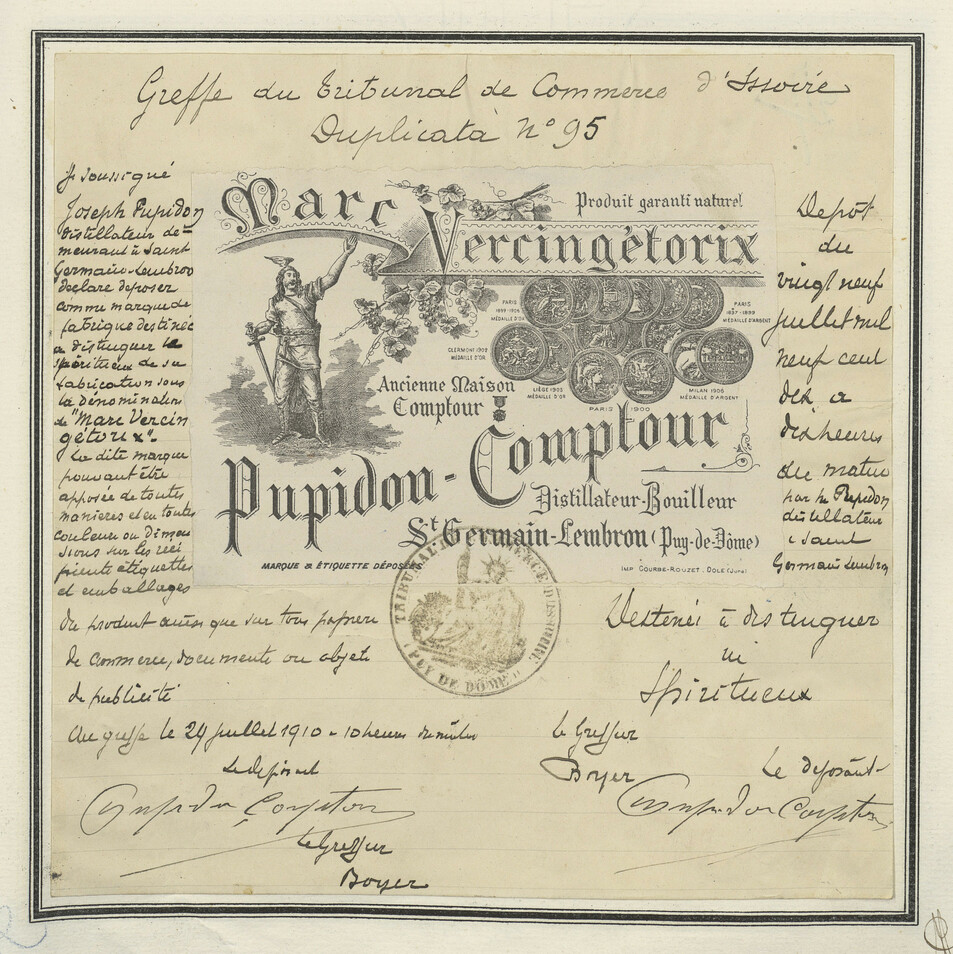 Greffe du Tribunal de Commerce d'Issoire
Duplicata N° 95
Je soussigné
Joseph Pupidon
distillateur de-
meurant à Saint
Germain-Lembron
declare deposer
comme marque de
fabrique destinée
a distinguer les
spiritueux de sa
fabrication sous
la dénomination
de "Marc Vercin
gétorix".
La dite marque
pouvant être
apposée de toutes
manieres et en toutes
couleurs ou dimen
sions sur les réci
pients étiquettes
et emballages
du produit ainsi que sur tous papiers
de commerce, documents ou objets
de publicité
Au greffe le 29 juillet 1910 - 10 heures du matin
Le deposant
Pupidon Comptour
Le Greffier
Boyer
Marc
Vercingétorix
Produit garanti naturel
PARIS
1899-1906
MÉDAILLE D'OR
PARIS
1897-1899
MÉDAILLE D'ARGENT
CLERMONT 1902
MÉDAILLE D'OR
LIÈGE 1905
MÉDAILLE D'OR
MILAN 1906
MÉDAILLE D'ARGENT
PARIS 1900
Ancienne Maison
Comptour
Pupidon-Comptour
Distillateur-Bouilleur
St Germain-Lembron (Puy-de-Dôme)
MARQUE & ÉTIQUETTE DÉPOSÉES
IMP. COURBE-ROUZET. DOLE (Jura)
TRIBUNAL DE COMMERCE D'ISSOIRE
PUY DE DÔME
Depôt
du
vingt neuf
Juillet mil
neuf cent
dix a
dix heures
du matin
par Mr Pupidon
distillateur
à Saint
Germain Lembron
Destiné à distinguer
Spiritueux
Le Greffier
Boyer
Le deposant
Pupidon Comptour